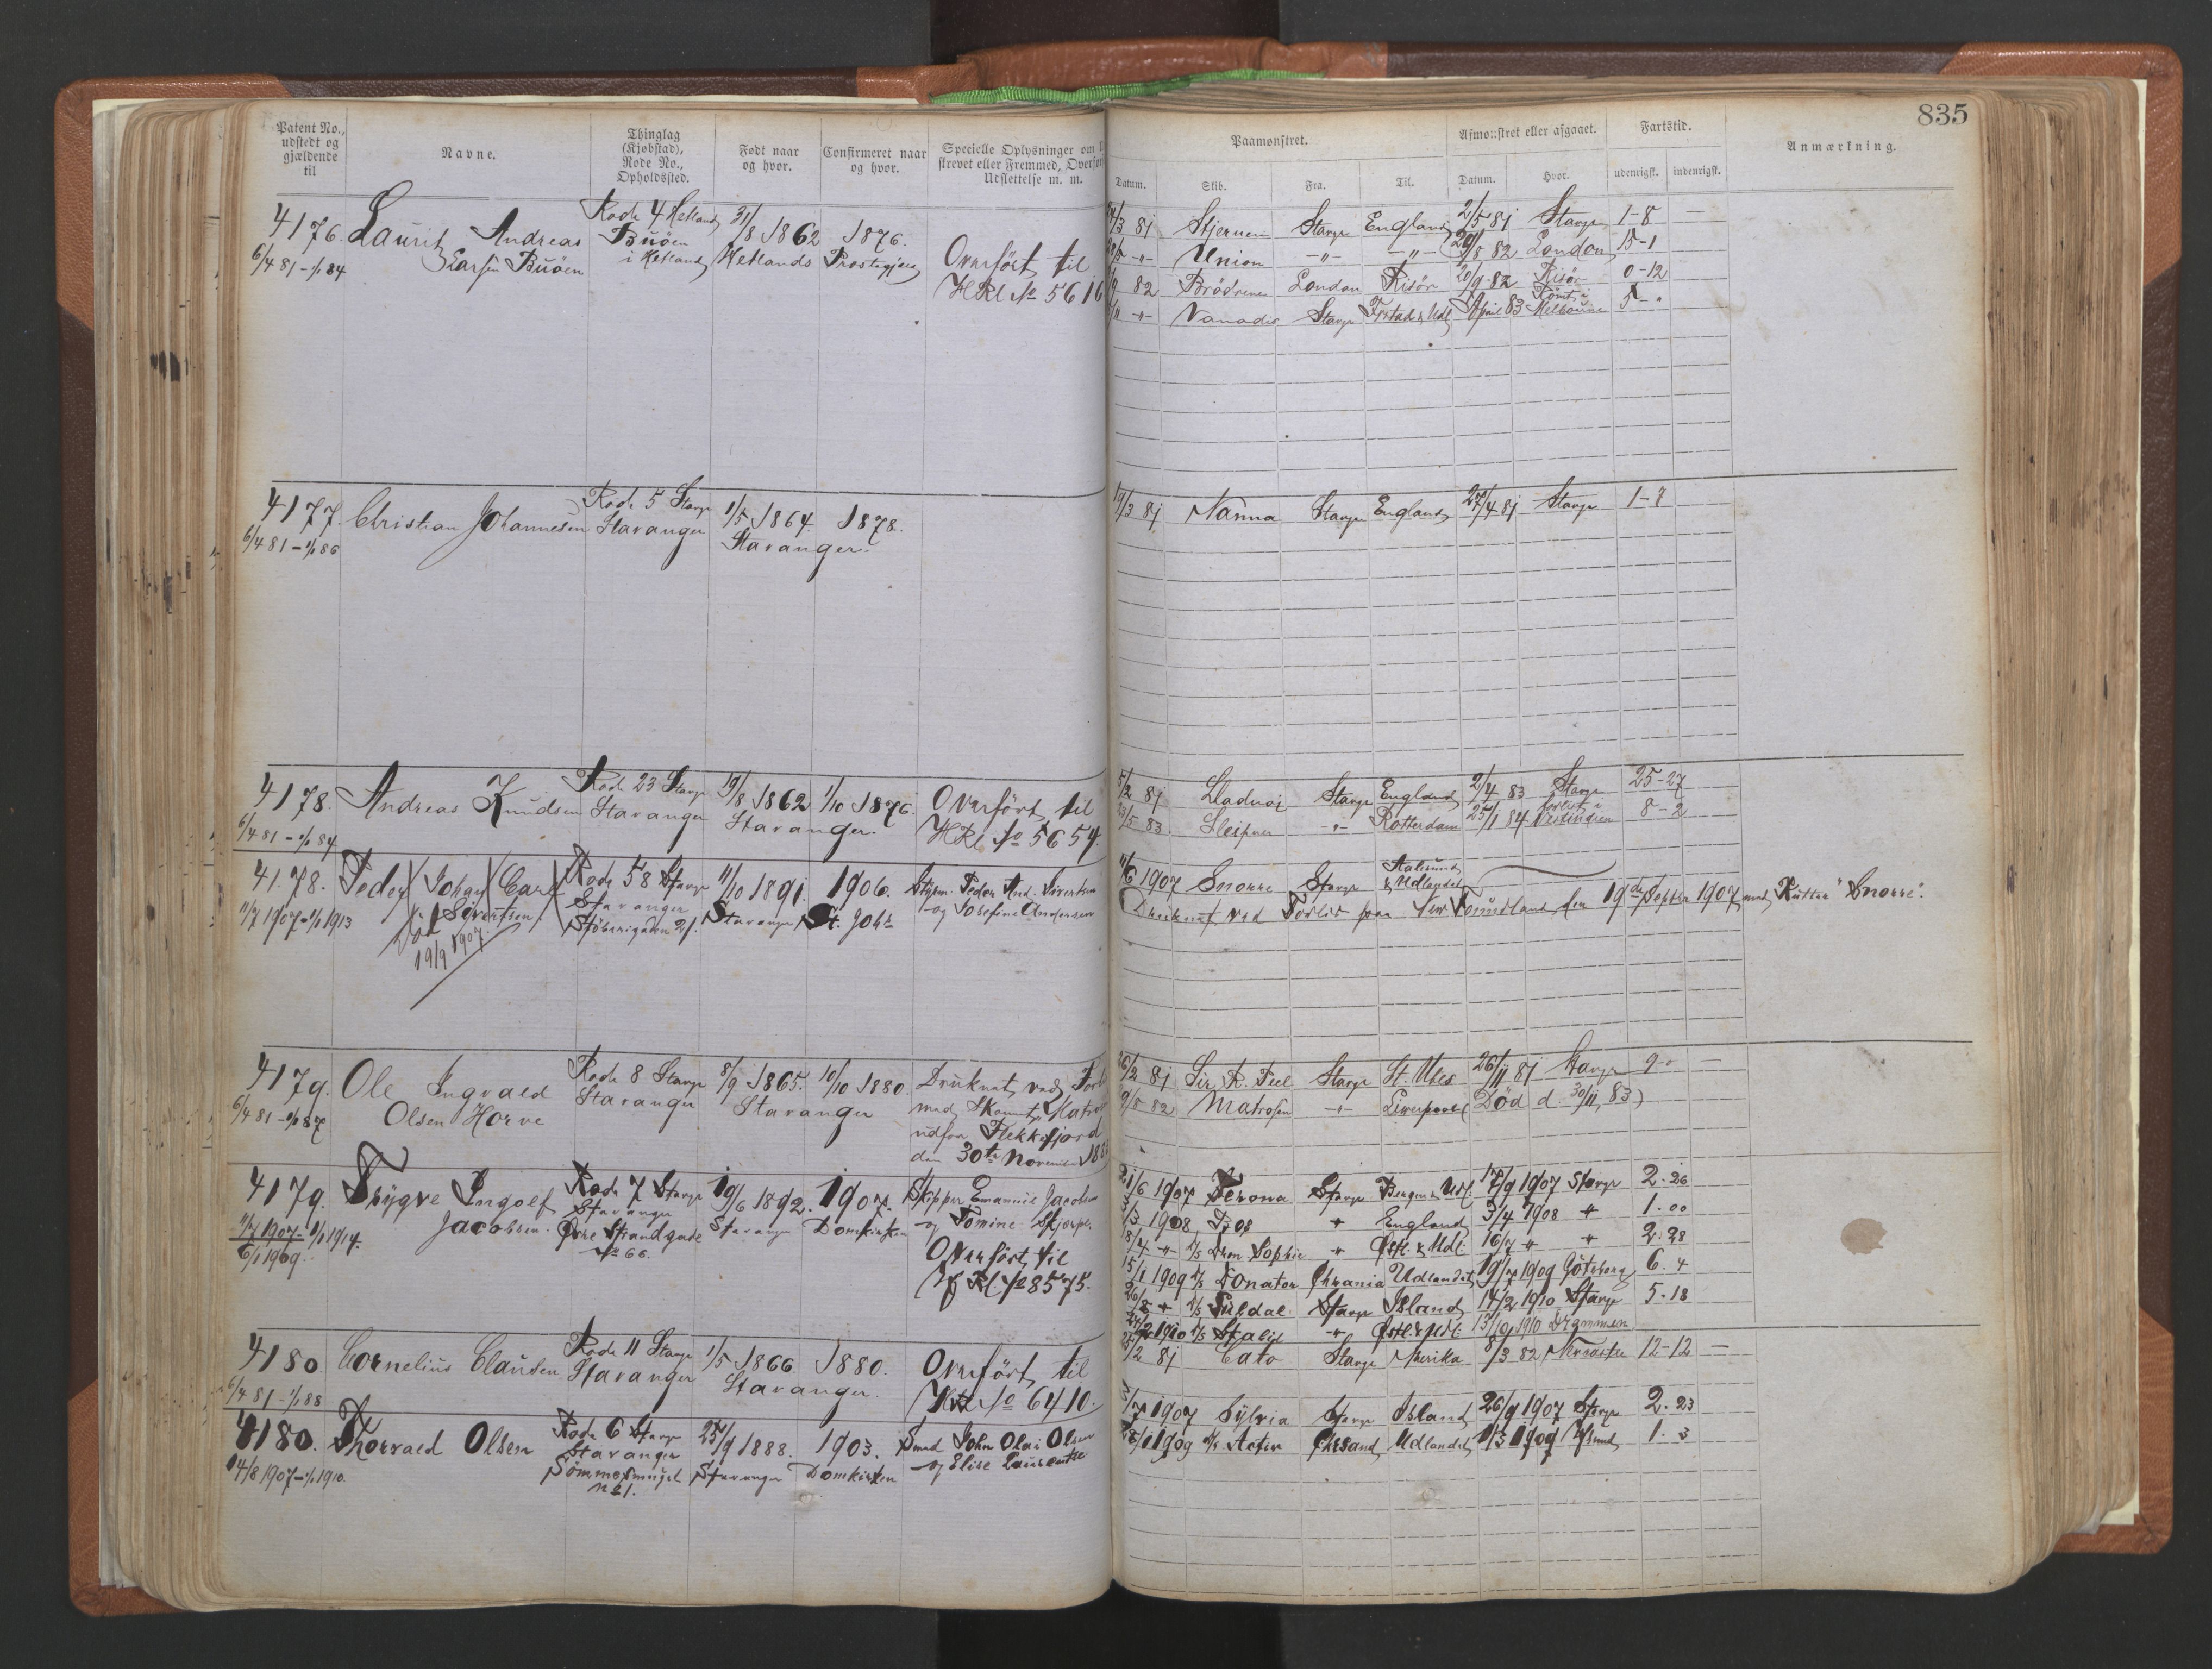 835
Patent No., udstedt og gjældende til
Navne.
Thinglag (Kjøbstad), Rode No., Opholdssted.
Født naar og hvor.
Confirmeret naar og hvor.
Specielle Oplysninger om
strevet eller Fremmed, Overfør
Udslettelse m. m.
Paamønstret.
Afmønstret eller afgaaet.
Fartstid.
Anmærkning.
Datum. Skib. Fra. Til. Datum. Hvor. udenrigsk. indenrigsk.
4176. Laurits Andreas Rode 4 Hetland 31/8 1862 1876.
6/4 81 - 1/1 84 Larsen Buöen Buöen i Hetland Hetlands Prostegjeld
Overført til
HRl No 5616
/3 81 Stjernen Stavgr England 2/5 81 Stavgr 1-8 —
/5 -"- Union -"- -"- 29/8 82 London 15-1
/9 82 Brødrene London Risör 20/9 82 Risör 0-12
/11 -"- Vanadis Stavgr Frstad & Udl April 83 Römt i Melbourne 5-"
4177. Christian Johannesen Rode 5 Stavgr 1/5 1864. 1878.
6/4 81 - 1/1 86 Stavanger Stavanger.
19/3 81 Nanna Stavgr England 27/4 81 Stavgr 1-7
4178. Andreas Knudsen Rode 23 Stavgr 19/8 1862 1/10 1876.
6/4 81 - 1/1 84 Stavanger Stavanger.
Overført til
HRl No 5654.
5/2 81 Ladnoi Stavgr England 2/4 83 Stavgr 25-27
23/5 83 Sleipner -"- Rotterdam 25/1 84 forlist i Vestindien 8-2
4178. Peder Johan Carl Rode 58 Stavgr 11/10 1891. 1906.
11/7 1907 - 1/1 1913 Sivertsen. Stavanger Stavanger St. Joh.
Död 19/9 1907. Støberigaden 21.
Styrm. Peder And. Sivertsen
og Josefine Andersen
11/6 1907 Snorre Stavgr Aalesund & Udlandet
Druknet ved Forlis paa New Foundland den 19de Septbr 1907 med Kutter "Snorre".
4179. Ole Ingvald Rode 8 Stavgr 8/9 1865. 10/10 1880.
6/4 81 - 1/1 87 Olsen Horve Stavanger Stavanger
Druknet ved Forl
med Skonnt. Matro
udfor Flekkefjord
den 30te November 188
26/2 81 Sir R. Peel Stavgr St. Ubes 26/11 81 Stavgr 9-" —
9/8 82 Matrosen -"- Liverpool (Död d. 30/11 83)
4179. Trygve Ingolf Rode 7 Stavgr 19/6 1892. 1907.
11/7 1907 - 1/1 1914. Jacobsen. Stavanger Stavanger Domkirken
6/1 1909. Øvre Strandgade No 66.
Skipper Emannuel Jacobsen
og Tomine Skjørpe.
Overført til
HRl No 8575.
21/6 1907 Verona Stavgr Bergen & Udl. 17/9 1907 Stavgr 2.26
3/3 1908 " England 3/4 1908 " 1.00
18/4 " D/S Dron. Sophie " Østl. & Udl. 16/7 " " 2.28
15/1 1909 D/S Donator Chrania Udlandet 19/7 1909 Göteborg 6.4
26/8 " D/S Suldal Stavgr Island 14/2 1910 Stavgr 5.18
24/2 1910 D/S Skalid " Østl. & Udl. 13/10 1910 Drammen
4180 Cornelius Clausen Rode 11 Stavgr 1/5 1866 1880.
6/4 81 - 1/1 88 Stavanger Stavanger.
Overført til
No 6410.
25/2 81 Cato Stavgr Merika 8/3 82 12-12 —
4180. Thorvald Olsen Rode 6 Stavgr 25/9 1888. 1903.
14/8 1907 - 1/1 1910. Stavanger Stavanger Domkirken
Sömmesmuget No 1.
Smed John Olai Olsen
og Elise Laurentse
3/7 1907 Sylvia Stavgr Island 26/9 1907 Stavgr 2.23
28/1 1909 D/S Activ Chrsand Udlandet 1/3 1909 1.3